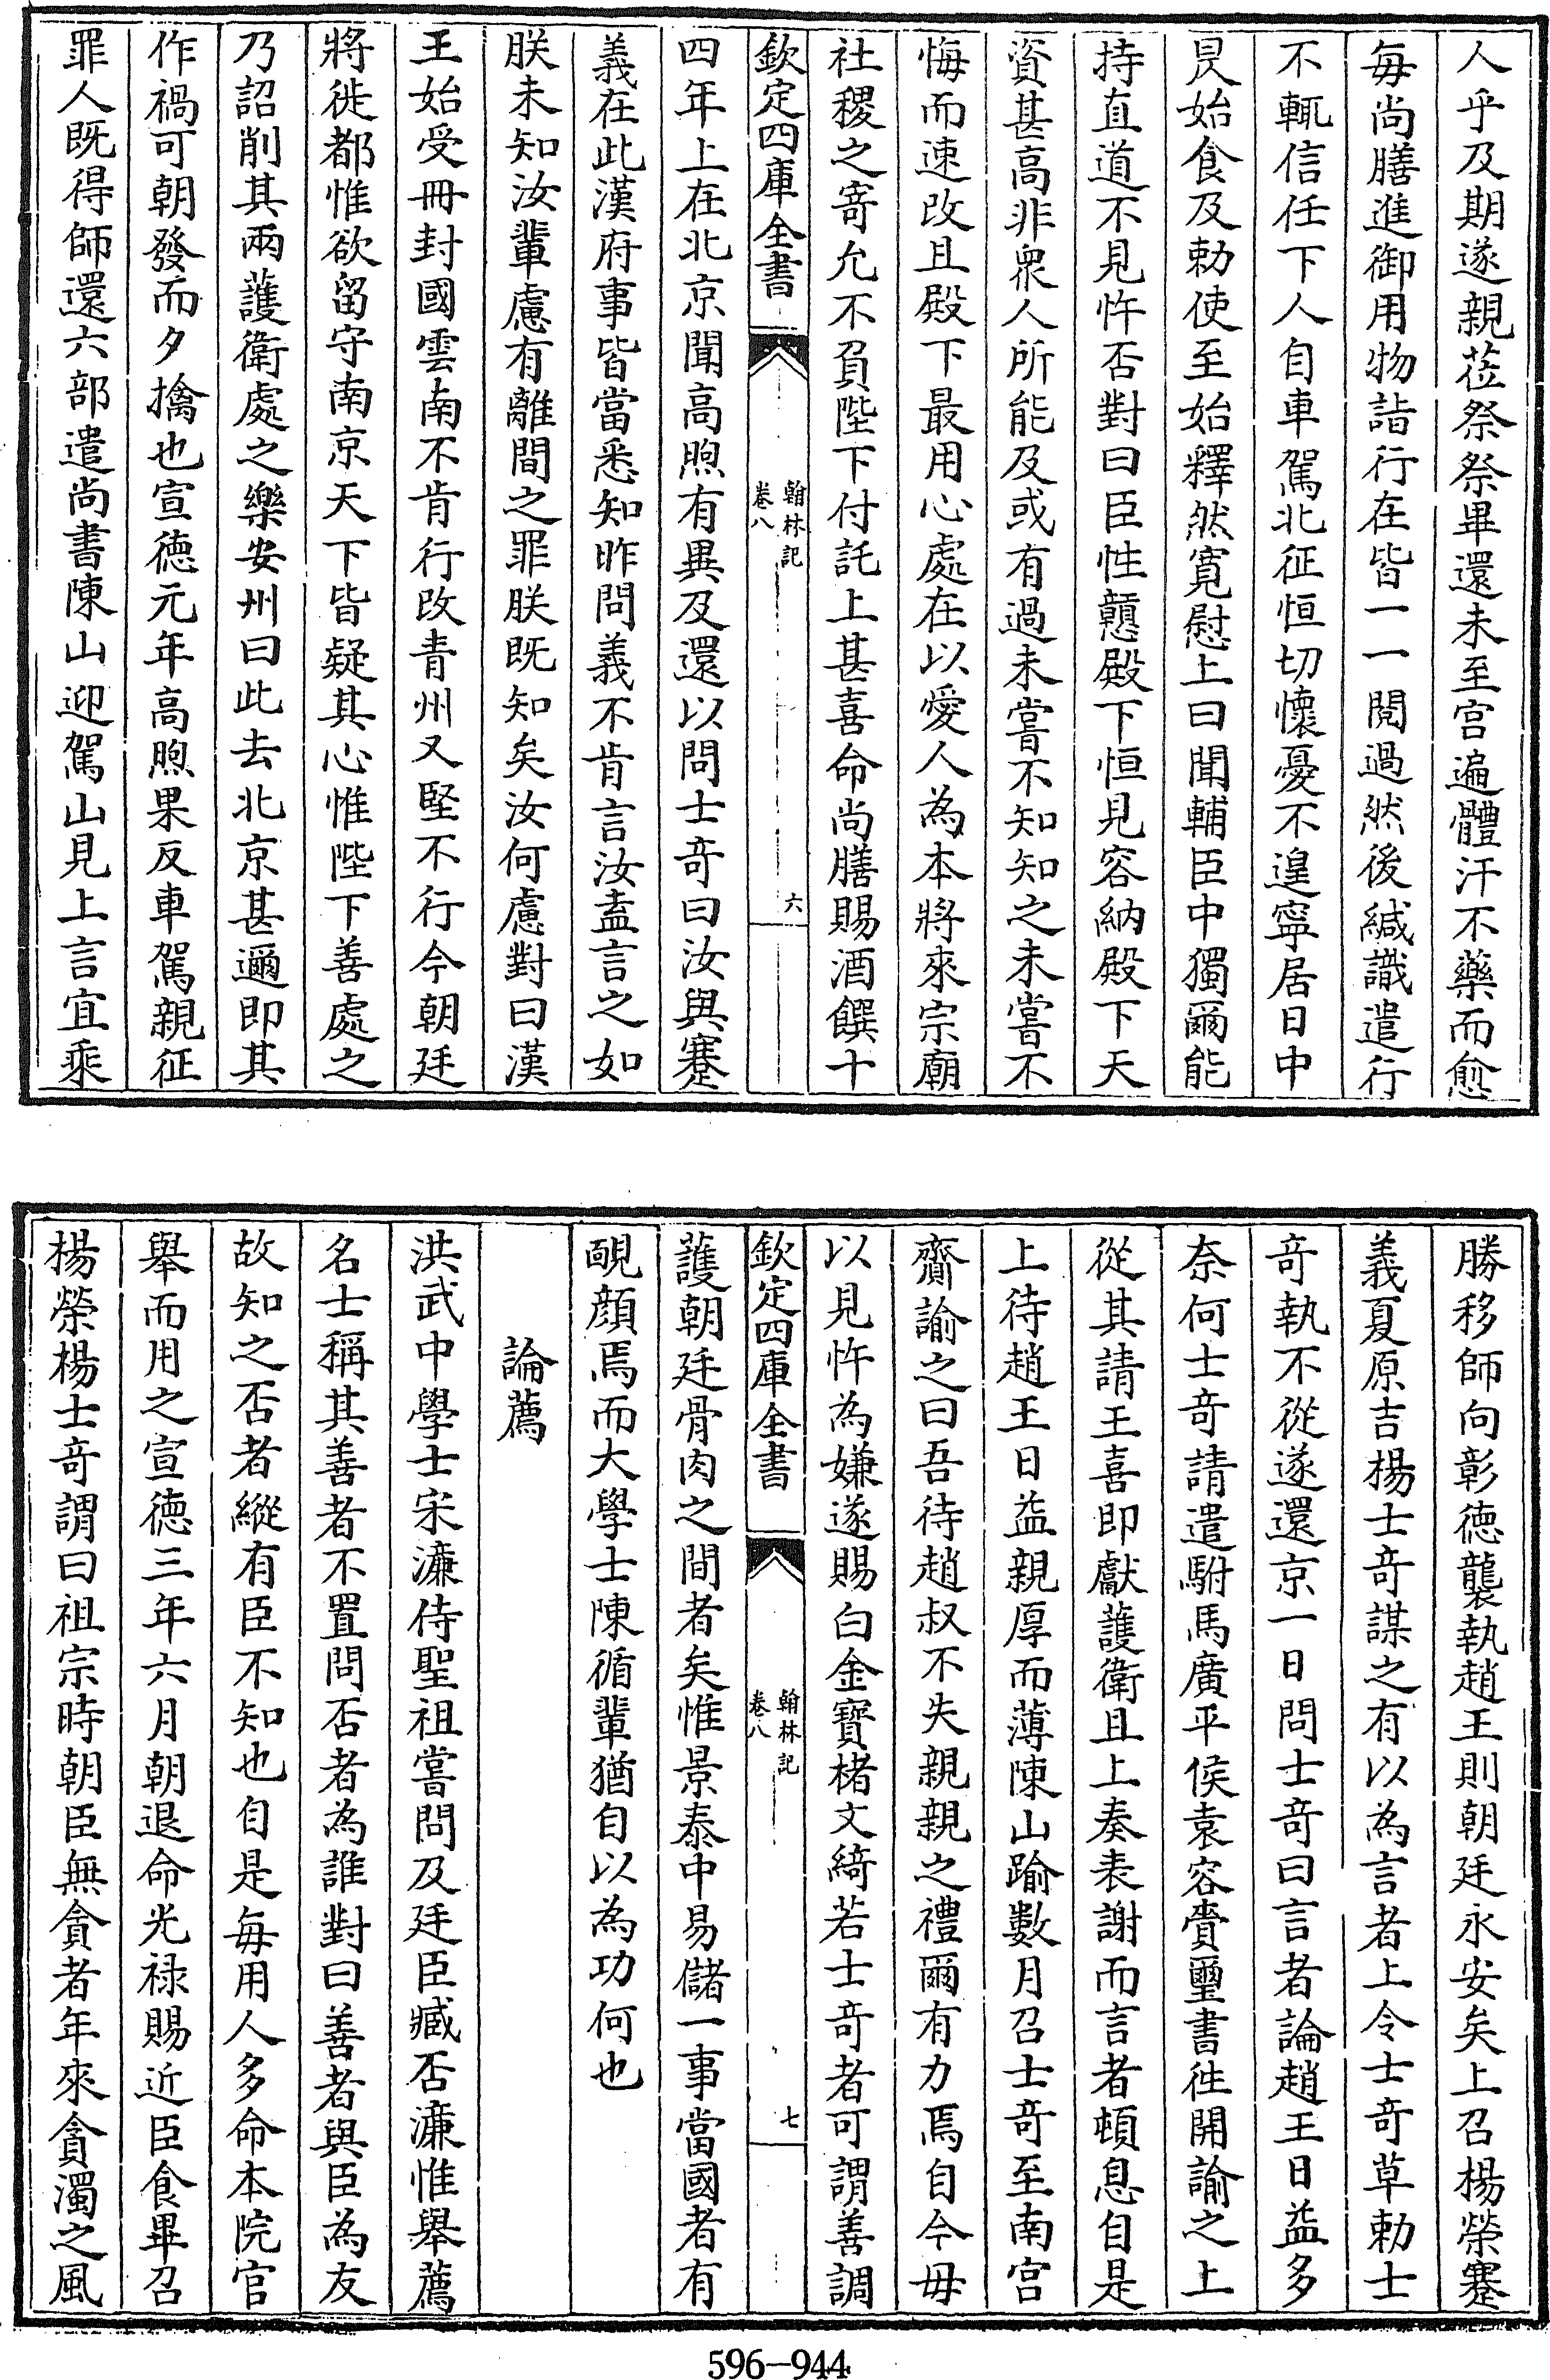 人乎及期遂親莅祭祭畢還未至宫遍體汗不藥而愈
每尚膳進御用物詣行在皆一一閲過然後緘識遣行
不輒信任下人自車駕北征恒切懷憂不遑寧居日中
昃始食及勅使至始釋然寛慰上曰聞輔臣中獨爾能
持直道不見忤否對曰臣性戆殿下恒見容納殿下天
資甚高非衆人所能及或有過未嘗不知知之未嘗不
悔而速改且殿下最用心處在以愛人為本將來宗廟
社稷之寄允不負陛下付託上甚喜命尚膳賜酒饌十
欽定四庫全書
翰林記
卷八
六
四年上在北京聞高煦有異及還以問士奇曰汝與蹇
義在此漢府事皆當悉知昨問義不肯言汝盍言之如
朕未知汝輩慮有離間之罪朕既知矣汝何慮對曰漢
王始受冊封國雲南不肯行改青州又堅不行今朝廷
將徙都惟欲留守南京天下皆疑其心惟陛下善處之
乃詔削其兩䕶衛處之樂安州曰此去北京甚邇即其
作禍可朝發而夕擒也宣徳元年高煦果反車駕親征
罪人既得師還六部遣尚書陳山迎駕山見上言宜乘
勝移師向彰徳襲執趙王則朝廷永安矣上召楊榮蹇
義夏原吉楊士奇謀之有以為言者上令士奇草勅士
奇執不從遂還京一日問士奇曰言者論趙王日益多
奈何士奇請遣駙馬廣平侯袁容賫璽書徃開諭之上
從其請王喜即獻䕶衛且上奏表謝而言者頓息自是
上待趙王日益親厚而薄陳山踰數月召士奇至南宫
齎諭之曰吾待趙叔不失親親之禮爾有力焉自今毋
以見忤為嫌遂賜白金寳楮文綺若士奇者可謂善調
欽定四庫全書
翰林記
卷八
七
䕶朝廷骨肉之間者矣惟景泰中易儲一事當國者有
靦顔焉而大學士陳循輩猶自以為功何也
論薦
洪武中學士宋濂侍聖祖嘗問及廷臣臧否濂惟舉薦
名士稱其善者不置問否者為誰對曰善者與臣為友
故知之否者縱有臣不知也自是每用人多命本院官
舉而用之宣徳三年六月朝退命光禄賜近臣食畢召
楊榮楊士奇謂曰祖宗時朝臣無貪者年來貪濁之風
596-944